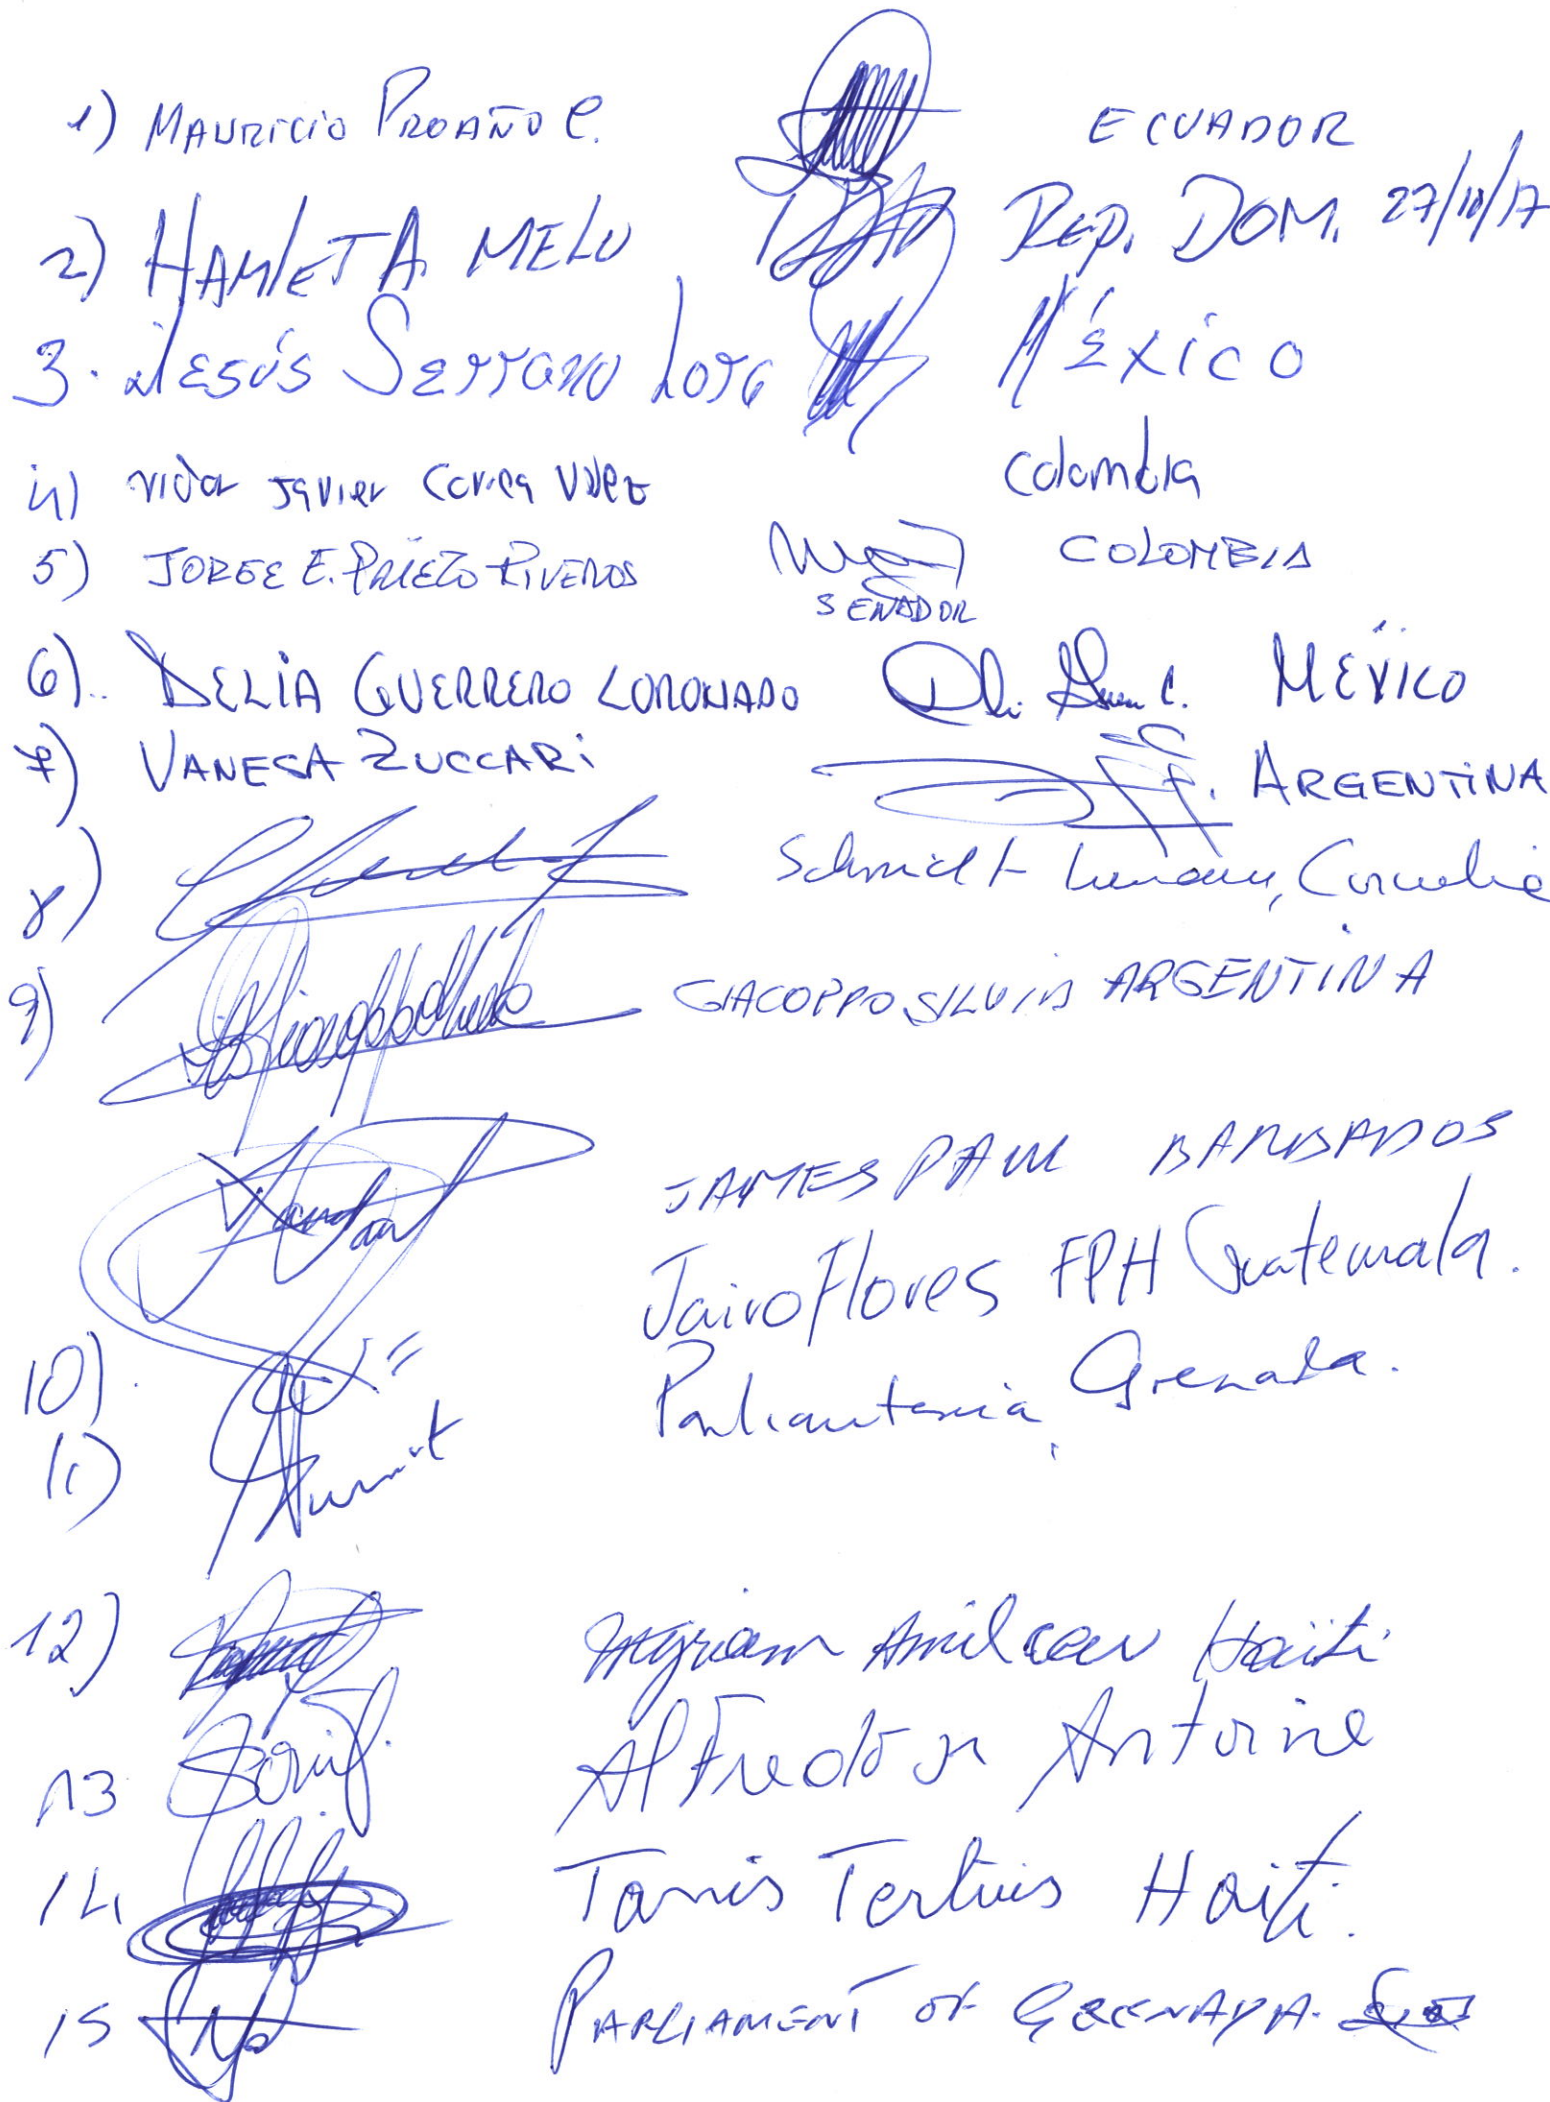 1) MAURICIO PROAÑO C. ECUADOR
2) HAMLET A. MELO REP. DOM. 27/11/17
3. JESÚS SERRANO LORA MÉXICO
4) Javier Correa Vélez Colombia
5) JORGE E. PRIETO RIVEROS COLOMBIA
SENADOR
6).. DELIA GUERRERO CORONADO MÉXICO
7) VANESA ZUCCARI ARGENTINA
8) Schmidt Liermann, Cornelia
9) GIACOPPO SILVIA ARGENTINA
JAMES PAUL BARBADOS
Jairo Flores FPH Guatemala.
10) Grenada.
11)
12) Myriam Amilcar Haïti
13 Alfredo Jr Antoine
14 Tanis Tertius Haiti.
15 PARLIAMENT OF GRENADA.